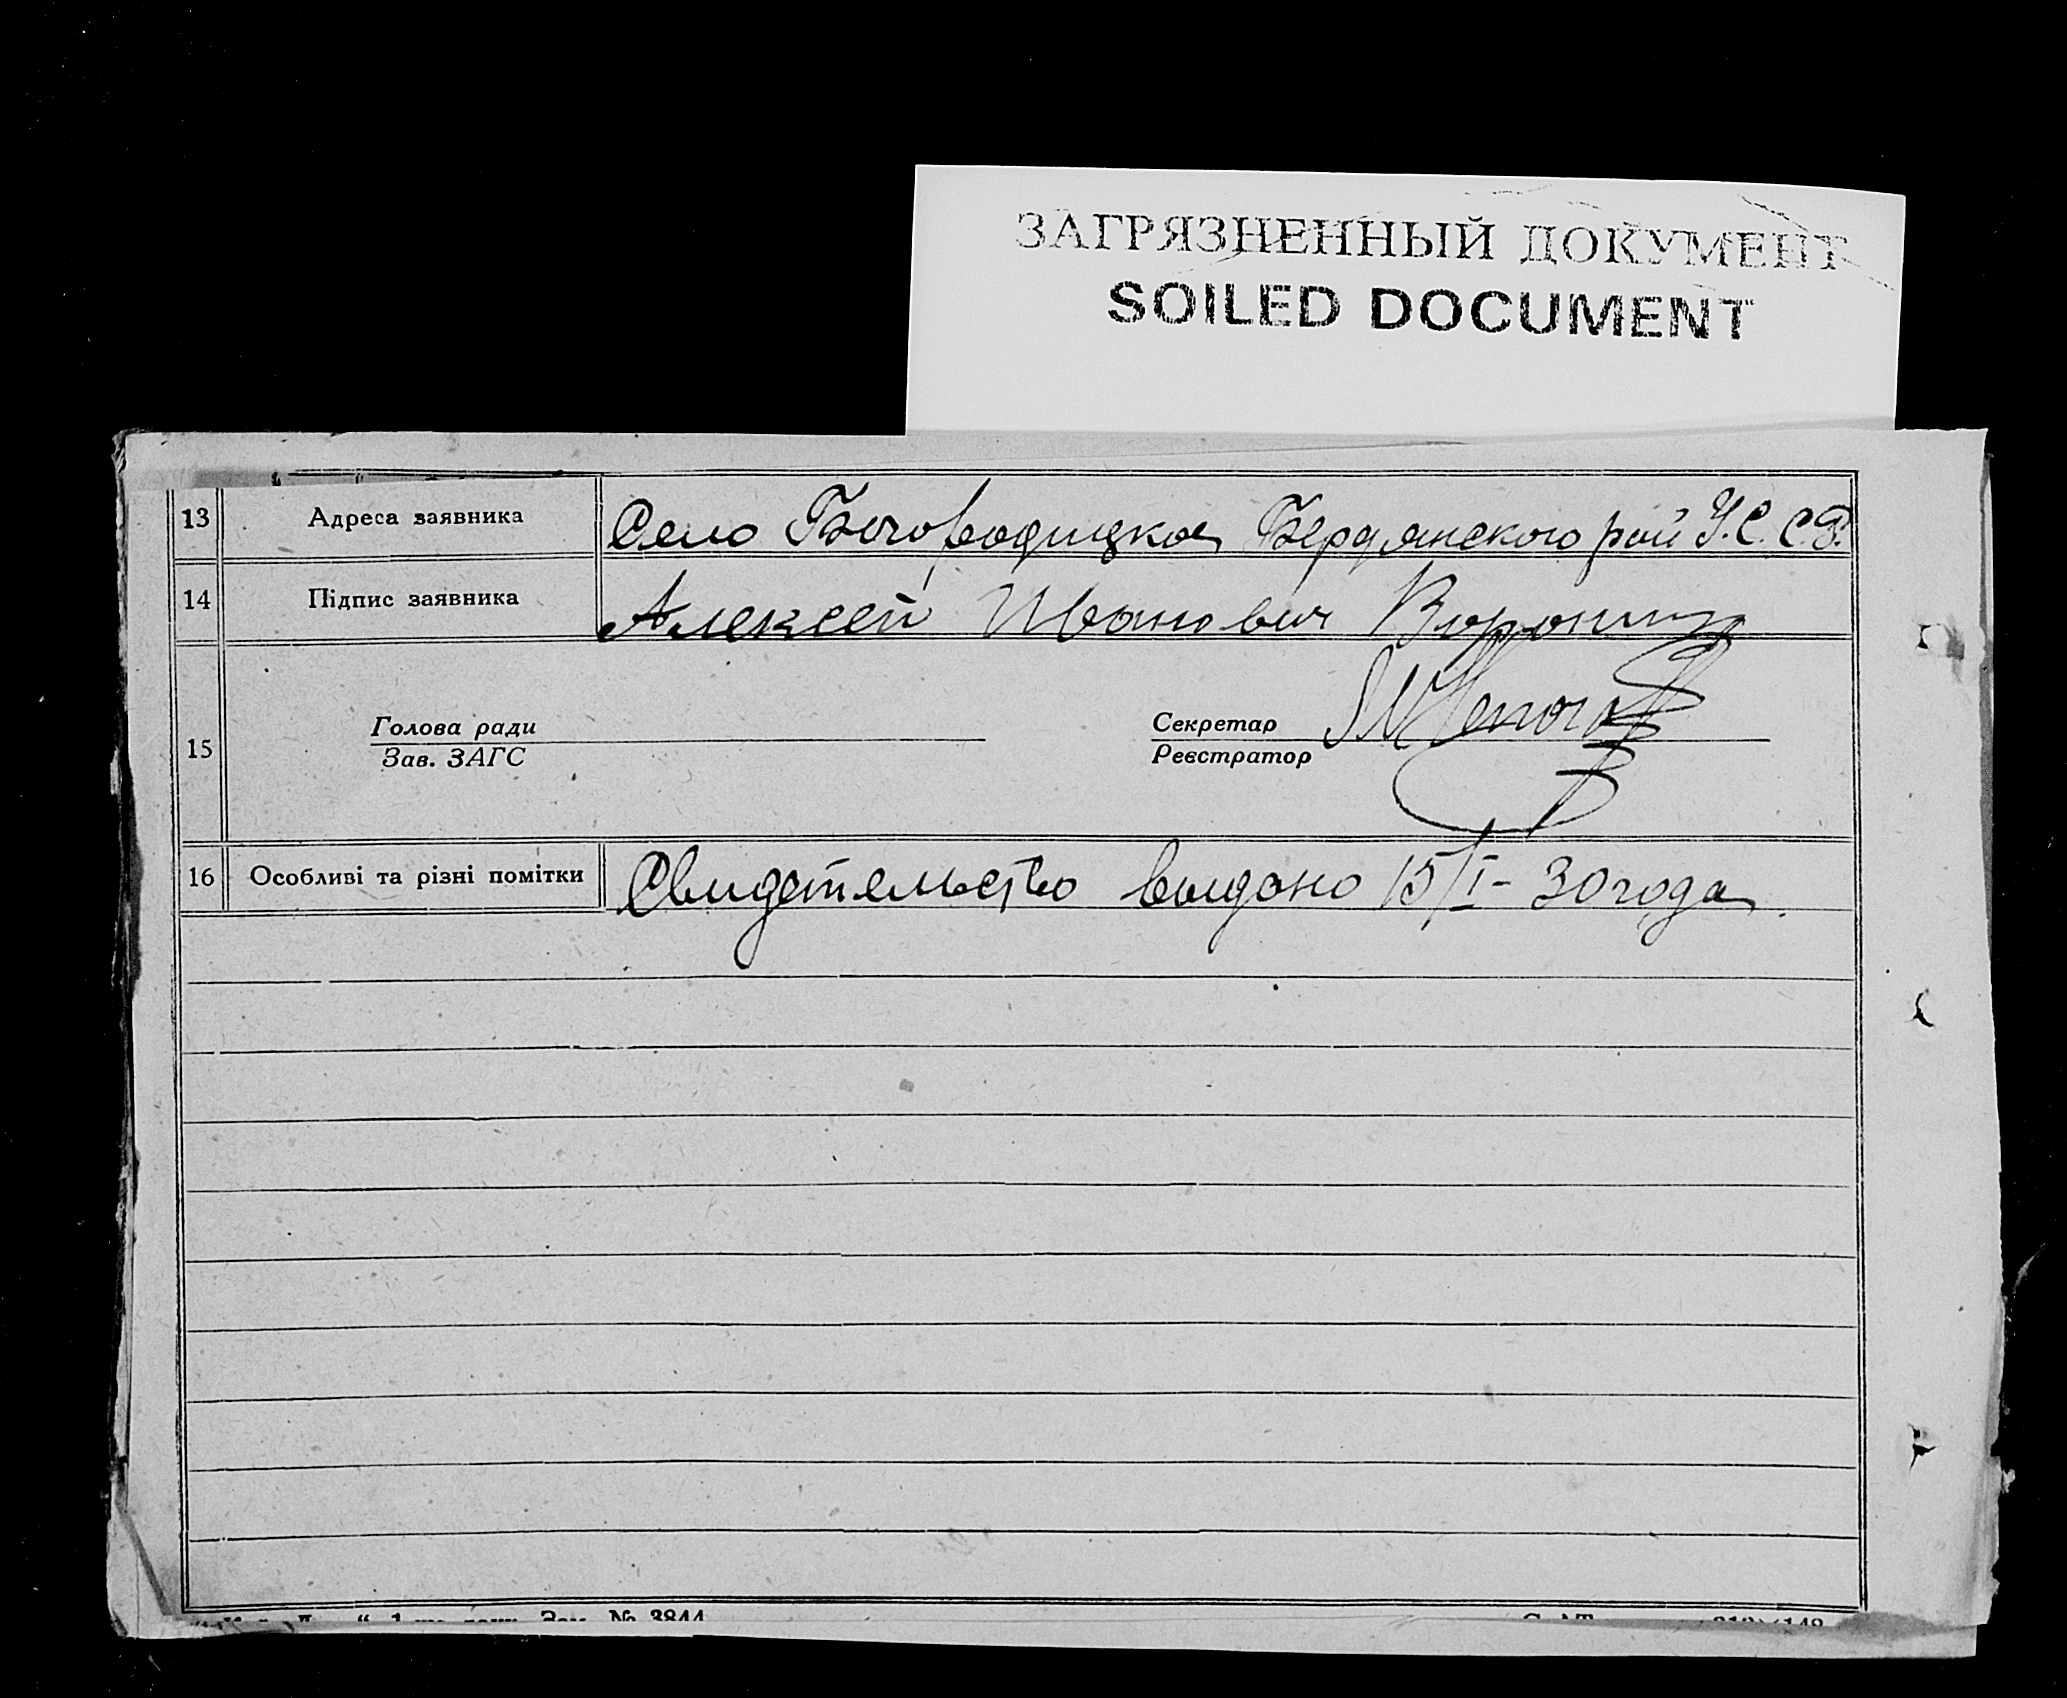 ЗАГРЯЗНЕННЫЙ ДОКУМЕНТ
SOILED DOCUMENT
13 Адреса заявника Село Богородицкое Бердянского рай У.С.С.Р.
14 Підпис заявника Алексей Иванович Воронин
15 Голова ради Секретар
Зав. ЗАГС Реєстратор
16 Особливі та різні помітки Свидетельство выдано 15/I-30 года.
Зам. № 3844